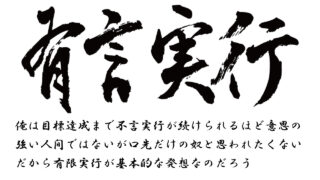 有言実行
俺は目標達成まで不言実行が続けられるほど意思の
強い人間ではないが口先だけの奴と思われたくない
だから有限実行が基本的な発想なのだろう